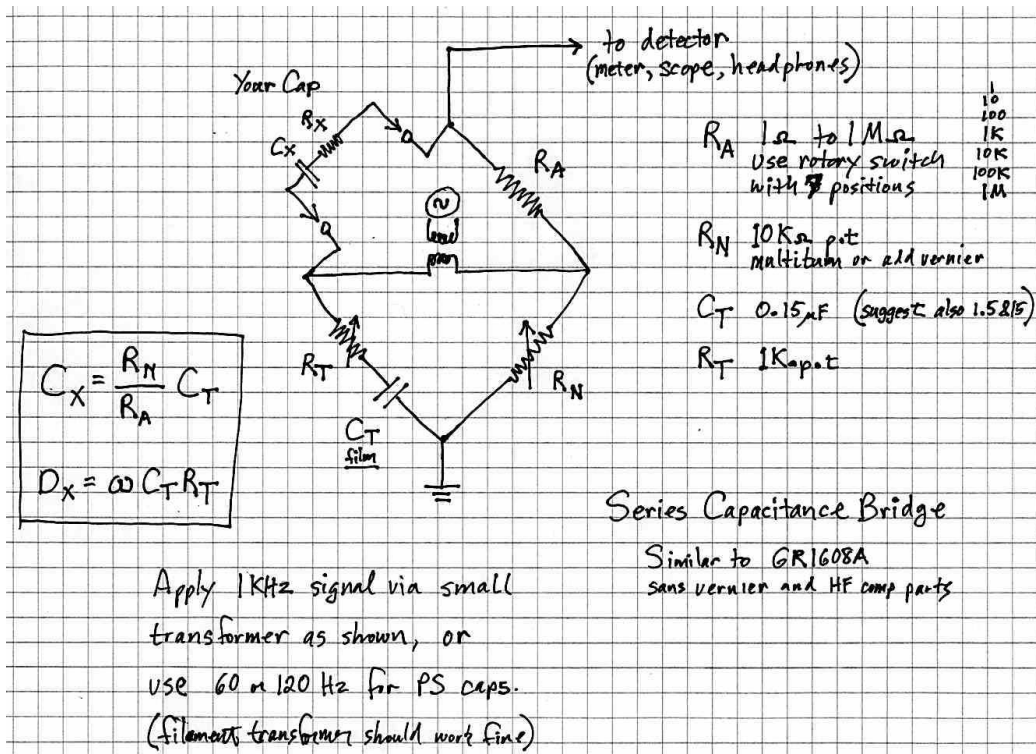 to detector
(meter, scope, headphones)
Your Cap
RX
CX
RA
RA 1Ω to 1MΩ
use rotary switch
with 7 positions
1
10
100
1K
10K
100K
1M
RN 10KΩ pot
multiturn or add vernier
CT 0.15μF (suggest also 1.5&15)
RT 1K pot
RT
CT
film
RN
CX = RN/RA CT
DX = ω CT RT
Series Capacitance Bridge
Similar to GR1608A
sans vernier and HF comp parts
Apply 1KHz signal via small
transformer as shown, or
use 60 or 120 Hz for PS caps.
(filament transformer should work fine)